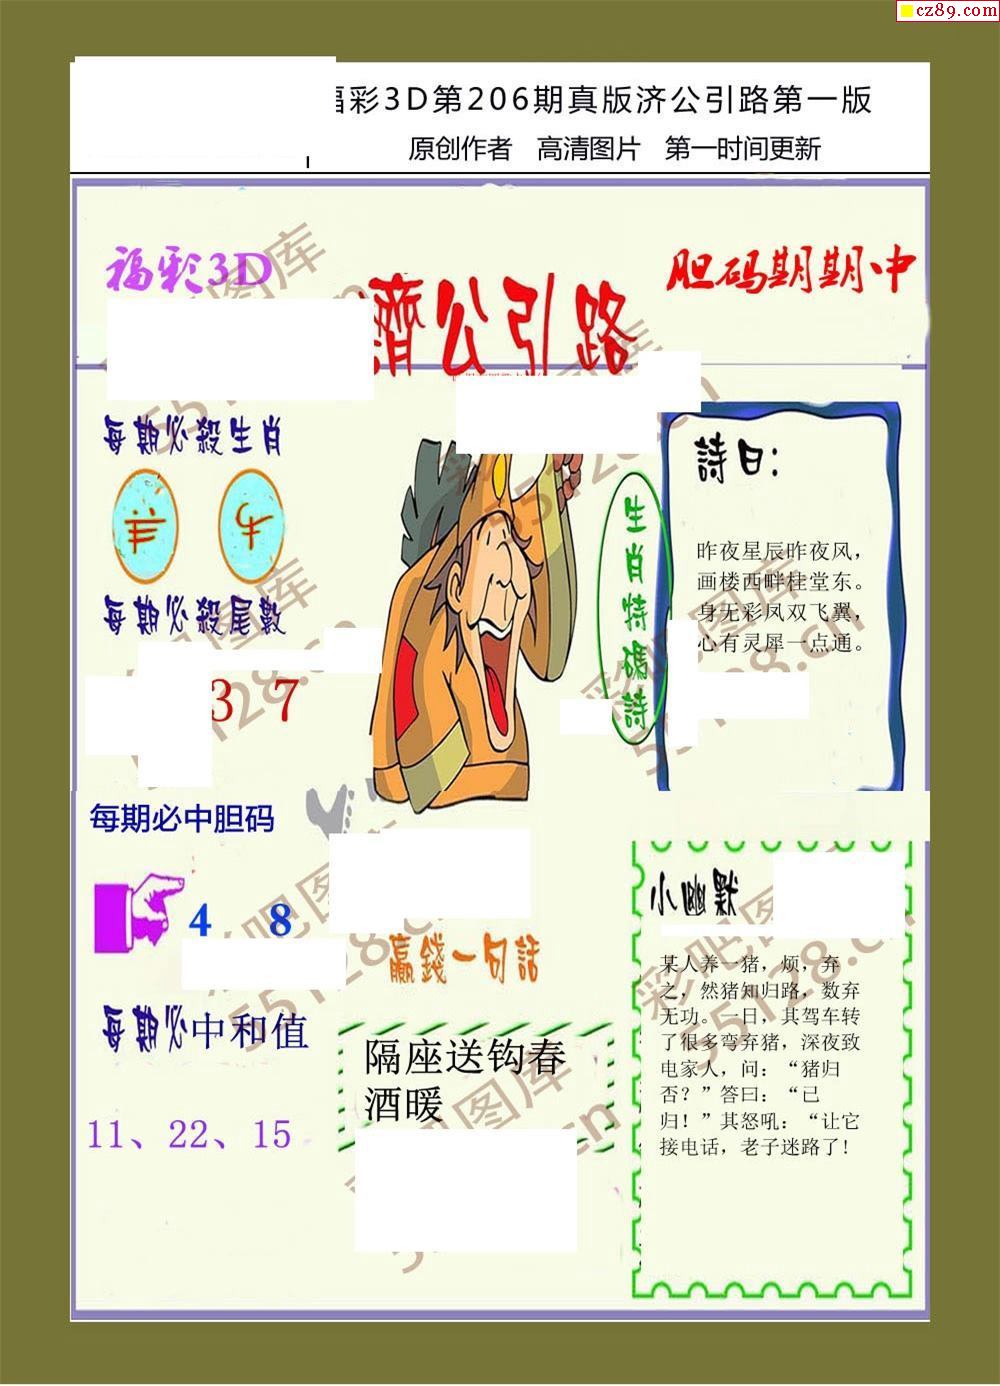 cz89.com
福彩3D第206期真版济公引路第一版
原创作者 高清图片 第一时间更新
福彩3D
濟公引路
胆码期期中
每期必殺生肖
羊 牛
每期必殺尾數
3 7
每期必中胆码
4 8
每期必中和值
11、22、15
生肖特碼詩
詩曰：
昨夜星辰昨夜风，
画楼西畔桂堂东。
身无彩凤双飞翼，
心有灵犀一点通。
赢錢一句話
隔座送钩春
酒暖
小幽默
某人养一猪，烦，弃
之，然猪知归路，数弃
无功。一日，其驾车转
了很多弯弃猪，深夜致
电家人，问：“猪归
否？”答曰：“已
归！”其怒吼：“让它
接电话，老子迷路了!
彩吧图库
55128.cn